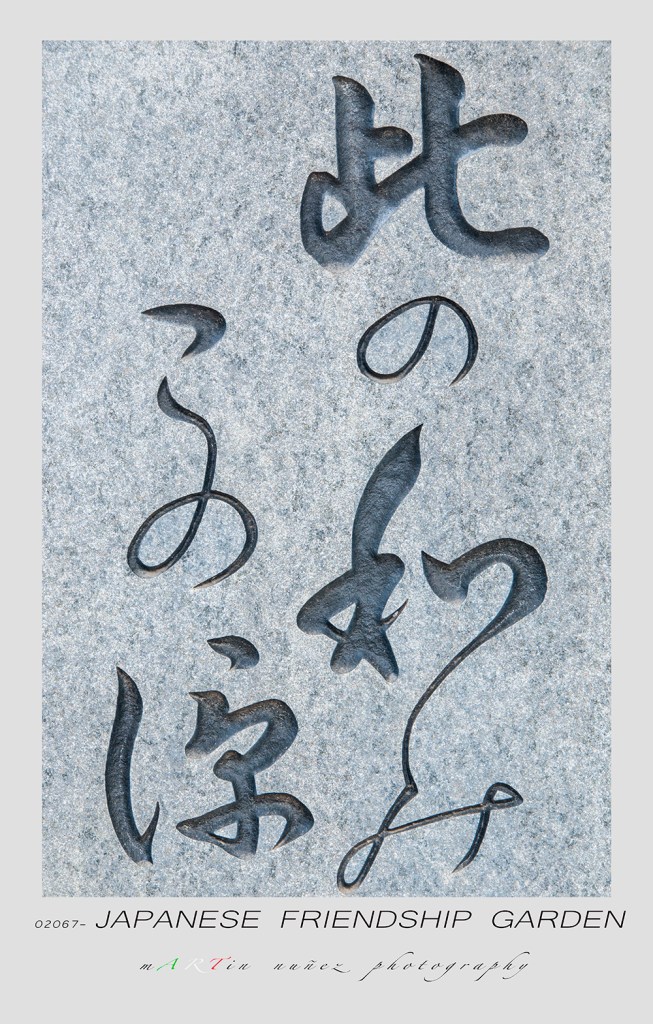 此の和み
深
02067- JAPANESE FRIENDSHIP GARDEN
mARTin nuñez photography